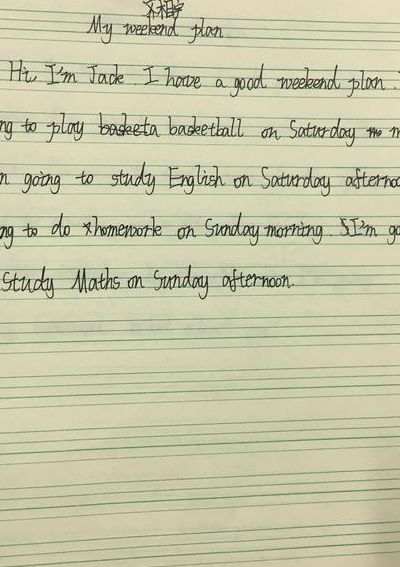 My weekend plan
Hi, I'm Jack I have a good weekend plan.
ng to play basketa basketball on Saturday
n going to study English on Saturday afternoo
ng to do homework on Sunday morning I'm go
study Maths on Sunday afternoon.